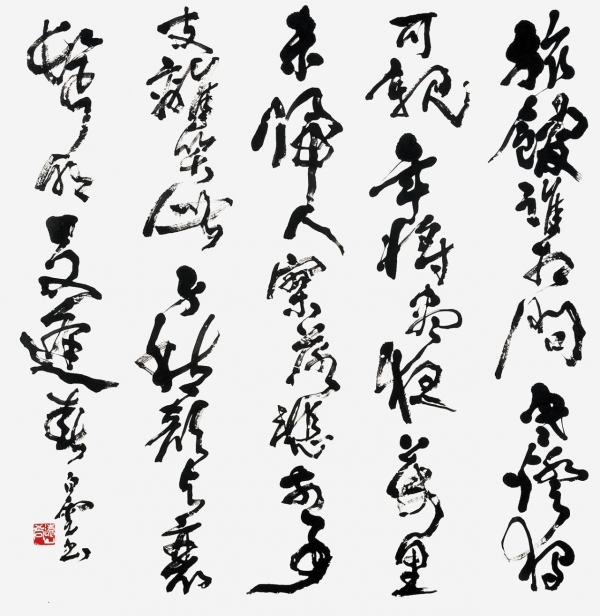 旅館誰相問寒燈獨
可親一年將盡夜萬里
未歸人寥落悲前事
支離笑此身愁顏與衰
鬢明日又逢春白雲書